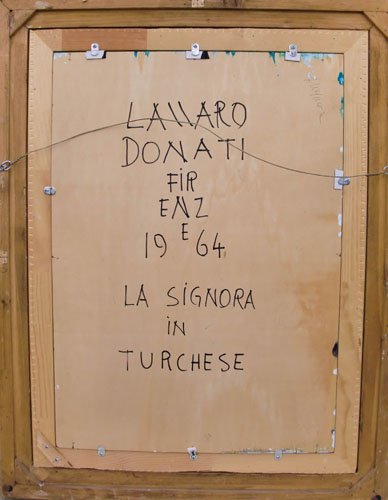 LAZZARO
DONATI
FIR
ENZ
E
19 64
LA SIGNORA
in
TURCHESE